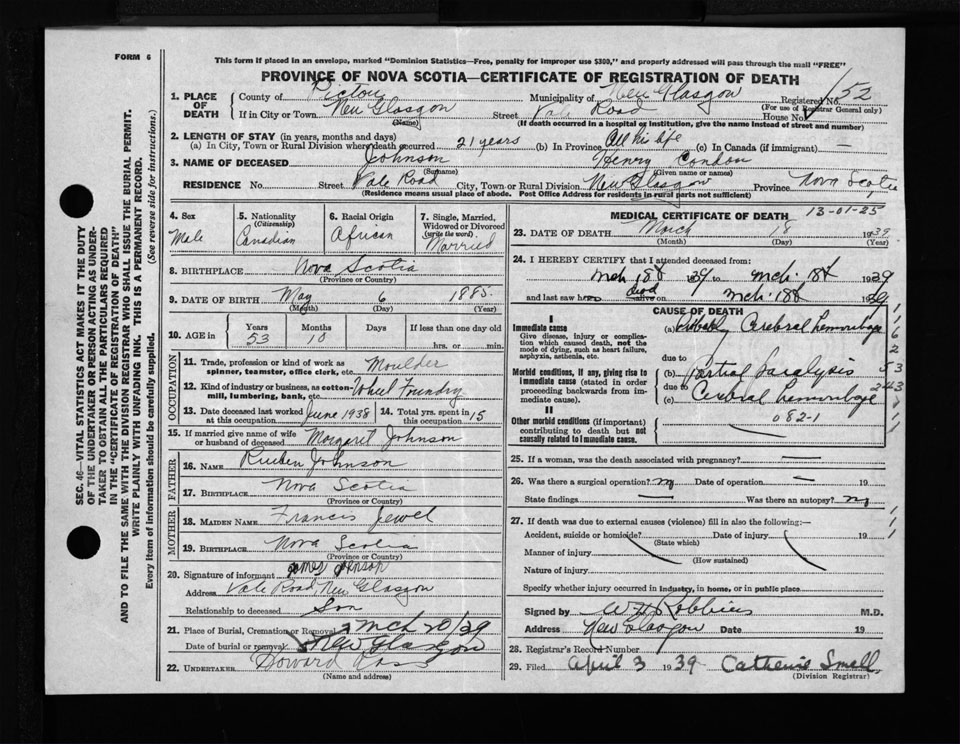 FORM 6
This form if placed in an envelope, marked "Dominion Statistics—Free, penalty for improper use $300," and properly addressed will pass through the mail "FREE"
PROVINCE OF NOVA SCOTIA—CERTIFICATE OF REGISTRATION OF DEATH
1. PLACE OF DEATH County of Pictou Municipality of New Glasgow Registered No. 152
(For use of Registrar General only)
If in City or Town New Glasgow (Name) Street Vale Road House No.
(If death occurred in a hospital or institution, give the name instead of street and number)
2. LENGTH OF STAY (in years, months and days)
(a) In City, Town or Rural Division where death occurred 21 years (b) In Province All his life (c) In Canada (if immigrant) —
3. NAME OF DECEASED Johnson Henry Condon
(Surname) (Given name or names)
RESIDENCE No. Street Vale Road City, Town or Rural Division New Glasgow Province Nova Scotia
(Residence means usual place of abode. Post Office Address for residents in rural parts not sufficient)
4. Sex Male
5. Nationality (Citizenship) Canadian
6. Racial Origin African
7. Single, Married, Widowed or Divorced (write the word) Married
8. BIRTHPLACE Nova Scotia
(Province or Country)
9. DATE OF BIRTH May 6 1885
(Month) (Day) (Year)
10. AGE in Years 53 Months 10 Days If less than one day old hrs. or min.
OCCUPATION
11. Trade, profession or kind of work as spinner, teamster, office clerk, etc. Moulder
12. Kind of industry or business, as cotton-mill, lumbering, bank, etc. Wheel Foundry
13. Date deceased last worked at this occupation June 1938 14. Total yrs. spent in this occupation 15
15. If married give name of wife or husband of deceased Margaret Johnson
FATHER
16. NAME Rueben Johnson
17. BIRTHPLACE Nova Scotia
(Province or Country)
MOTHER
18. MAIDEN NAME Francis Jewel
19. BIRTHPLACE Nova Scotia
(Province or Country)
20. Signature of informant James Johnson
Address Vale Road, New Glasgow
Relationship to deceased Son
21. Place of Burial, Cremation or Removal Mch 20/39
Date of burial or removal New Glasgow
22. UNDERTAKER
(Name and address)
MEDICAL CERTIFICATE OF DEATH 13-01-25
23. DATE OF DEATH March 18 1939
(Month) (Day) (Year)
24. I HEREBY CERTIFY that I attended deceased from:
Mch 18th 1939 to Mch. 18th 1939
and last saw h dead alive on Mch. 18th 1939
CAUSE OF DEATH
I
Immediate cause
Give disease, injury or complication which caused death, not the mode of dying, such as heart failure, asphyxia, asthenia, etc.
(a) Probably Cerebral hemorrhage
due to
Morbid conditions, if any, giving rise to immediate cause (stated in order proceeding backwards from immediate cause).
(b) Partial Paralysis
due to
(c) Cerebral hemorrhage
II
Other morbid conditions (if important) contributing to death but not causally related to immediate cause.
082-1
25. If a woman, was the death associated with pregnancy? —
26. Was there a surgical operation? no Date of operation — 19
State findings — Was there an autopsy? no
27. If death was due to external causes (violence) fill in also the following:—
Accident, suicide or homicide? Date of injury 19
(State which)
Manner of injury
(How sustained)
Nature of injury
Specify whether injury occurred in industry, in home, or in public place
Signed by W F Robbins M.D.
Address New Glasgow Date 19
28. Registrar's Record Number
29. Filed April 3 1939 Catherine Small
(Division Registrar)
SEC. 46—VITAL STATISTICS ACT MAKES IT THE DUTY
OF THE UNDERTAKER OR PERSON ACTING AS UNDER-
TAKER TO OBTAIN ALL THE PARTICULARS REQUIRED
IN THE "CERTIFICATE OF REGISTRATION OF DEATH"
AND TO FILE THE SAME WITH THE DIVISION REGISTRAR WHO SHALL ISSUE THE BURIAL PERMIT.
WRITE PLAINLY WITH UNFADING INK. THIS IS A PERMANENT RECORD.
Every item of information should be carefully supplied. (See reverse side for instructions.)